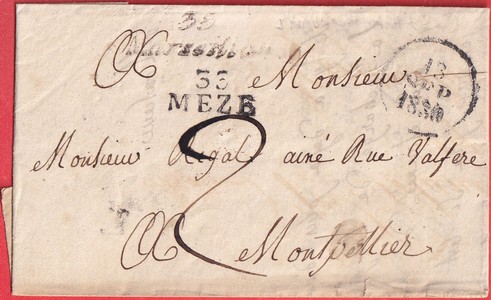 33
Marseillan
A Monsieur
33
MEZE
13
SEP
1830
Monsieur Rigal ainé Rue Valfere
2
A Montpellier